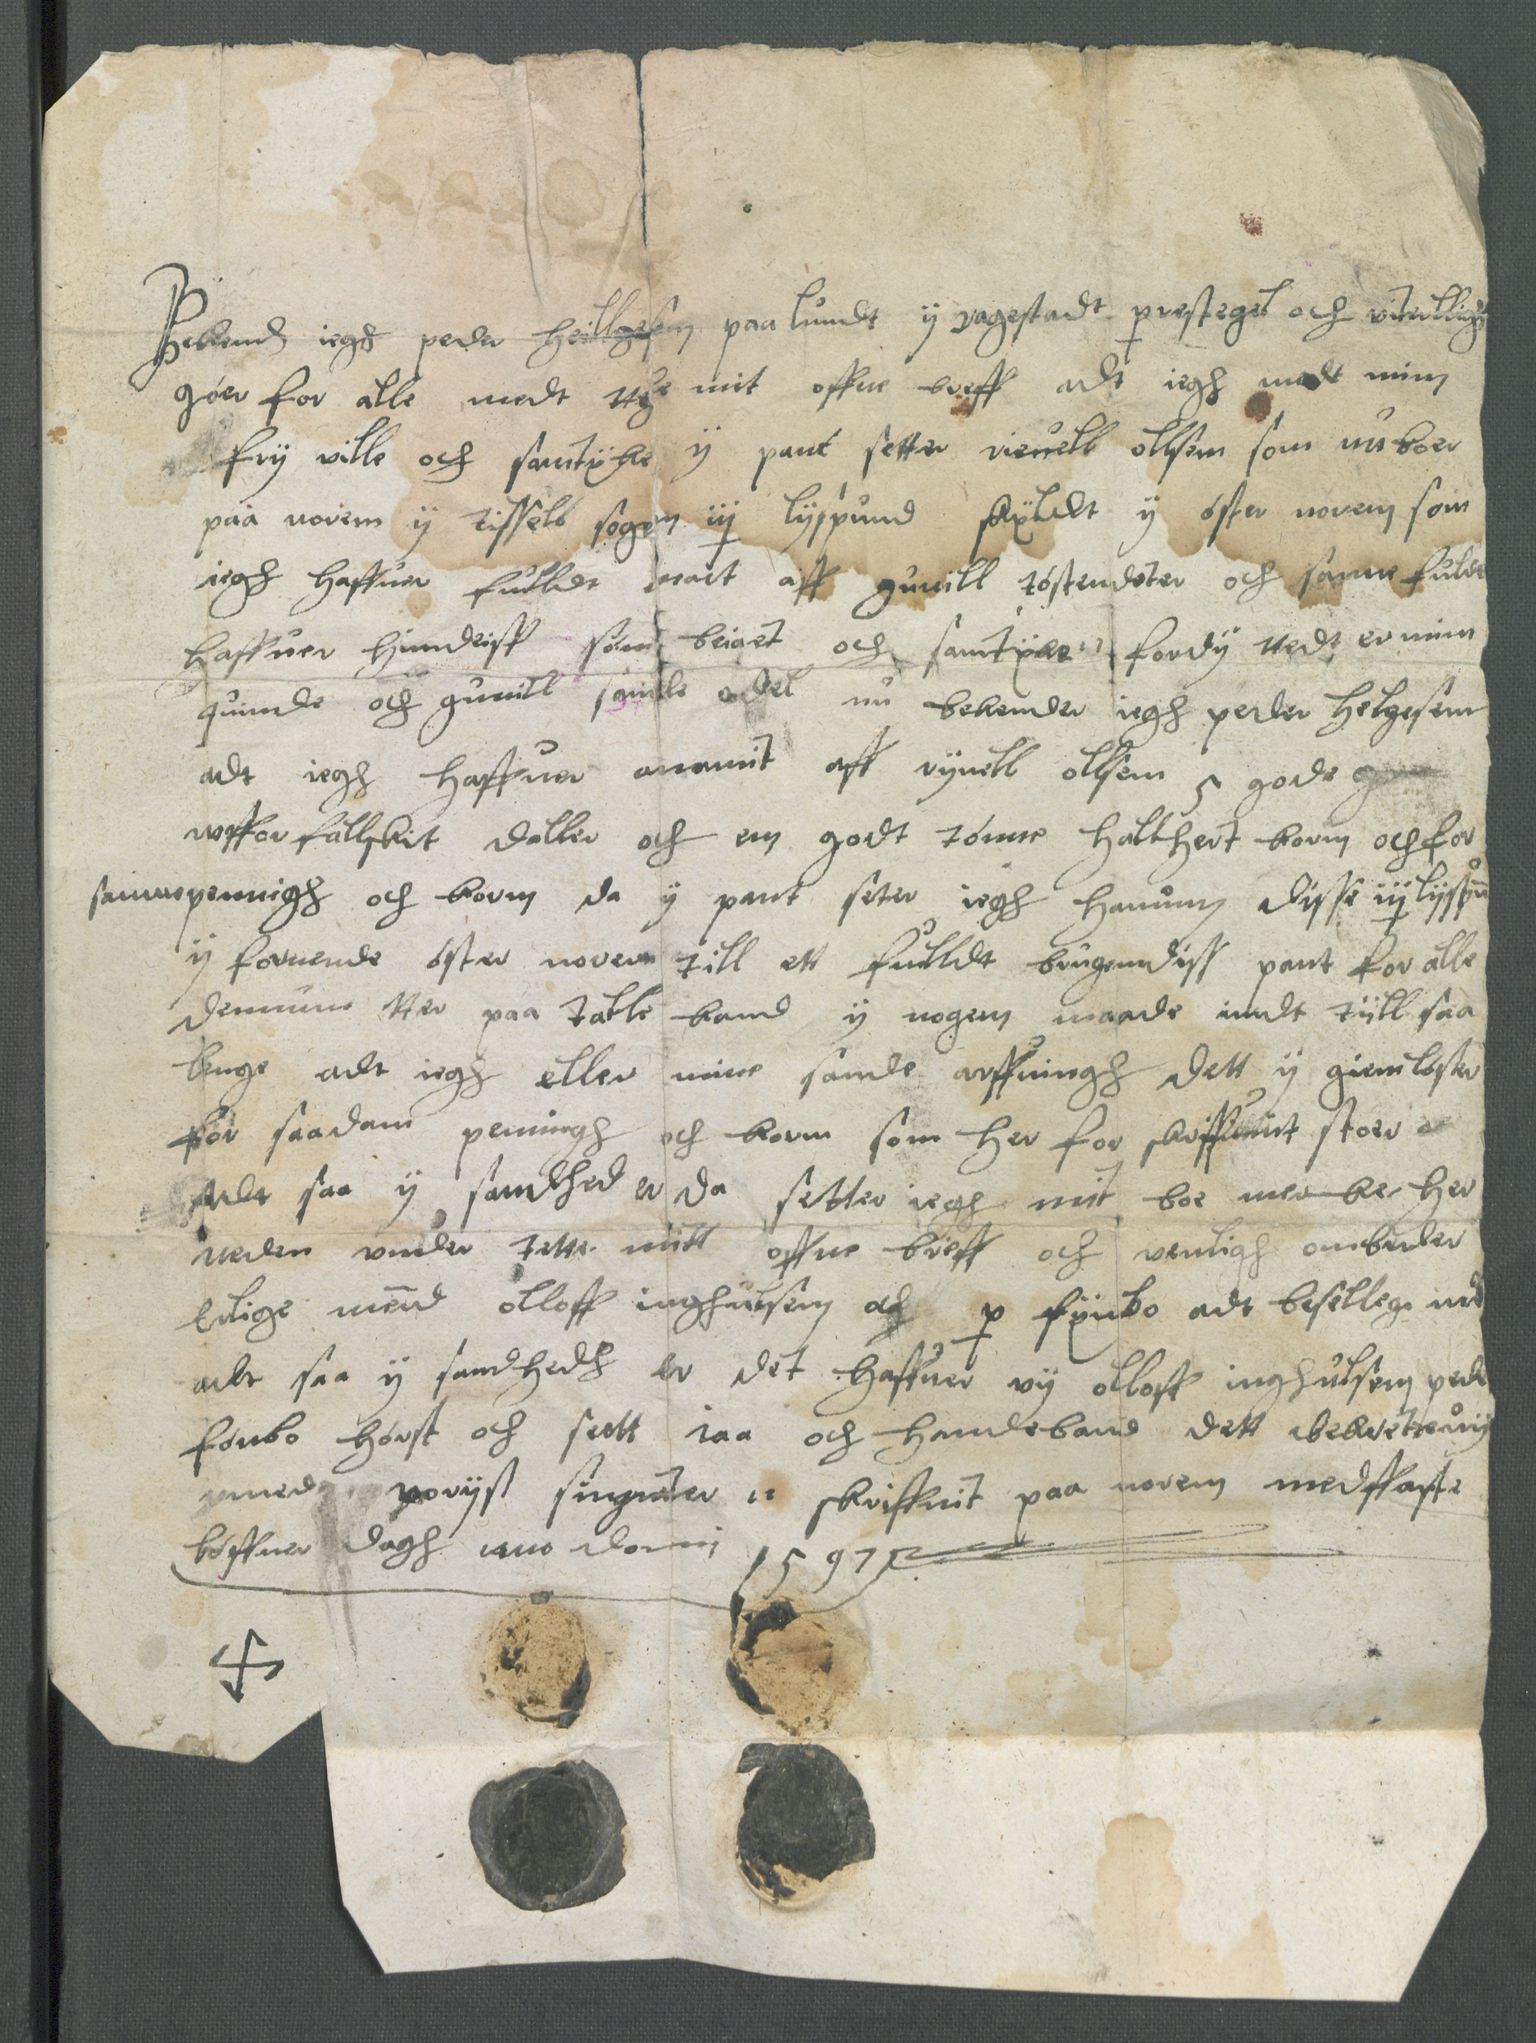 Bekend iegh peder heillgesen paa lundt ÿ vagestadt prestegel och vitterlligt
gøer for alle medt tte mit offne breff adt iegh medt minn
frÿ ville och samtÿke ÿ pant setter rieuell ollsem som nu boer
paa norem ÿ tisselø sogen iij lÿspund skÿldt ÿ øster norem som
iegh haffuer fulldt mact aff gunill tostendoter och samme fulde
haffuer hun deiss som beiaet och samtÿke fordÿ ttedt er min
quinde och gunill samle odel nu bekender iegh peder helgesem
adt iegh haffuer anamit aff rÿuell ollsem 5 gode g
wfforfallskit daller och en godt tønne halthert korn och for
samme peningh och korn da ÿ pant seter iegh hanum disse iij lÿspun
ÿ fornende øster norem till ett fulldt brugendiss pant for alle
dennum tter paa talle kand ÿ nogen maade indt tÿll saa
lenge adt iegh eller mine sande arffuingh dett ÿ gienløser
for saadam peningh och korn som her for skriffuit stoer
Adt saa ÿ sandhed er da setter iegh mit boe mercke her
neden vnder tette mitt offne breff och venligh ombeder
erlige mend olloff inghulsem och p fÿnbo adt besellege med
adt saa ÿ sandhedh er det haffuer vÿ olloff inghulsem peder
fønbo hørst och seett iaa och handeband dett bekrefte vÿ
med vorÿst singneter skriffuit paa norem medffaste
løffuer dagh ano domni 1597